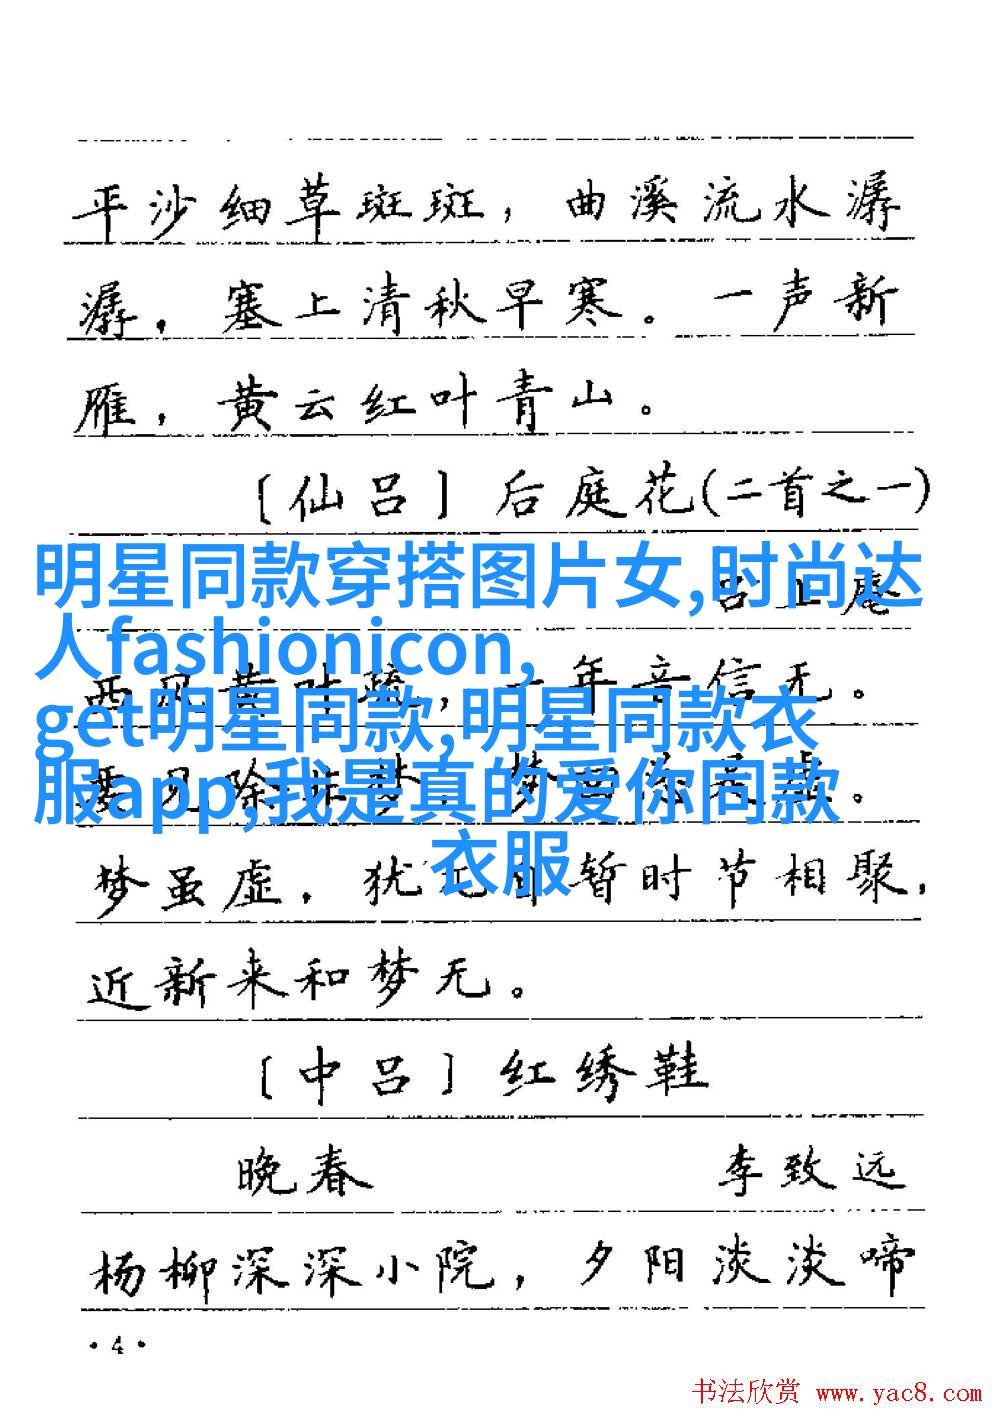 平沙细草斑斑，曲溪流水潺
潺，塞上清秋早寒。一声新
雁，黄云红叶青山。
〔仙吕〕后庭花(二首之一)
明星同款穿搭图片女,时尚达
人fashionicon,
get明星同款,明星同款衣
服app,我是真的爱你同款
衣服
年音信无。
梦虽虚，犹 暂时节相聚，
近新来和梦无。
〔中吕〕红绣鞋
晚春 李致远
杨柳深深小院，夕阳淡淡啼
·4·
书法欣赏 www.yac8.com